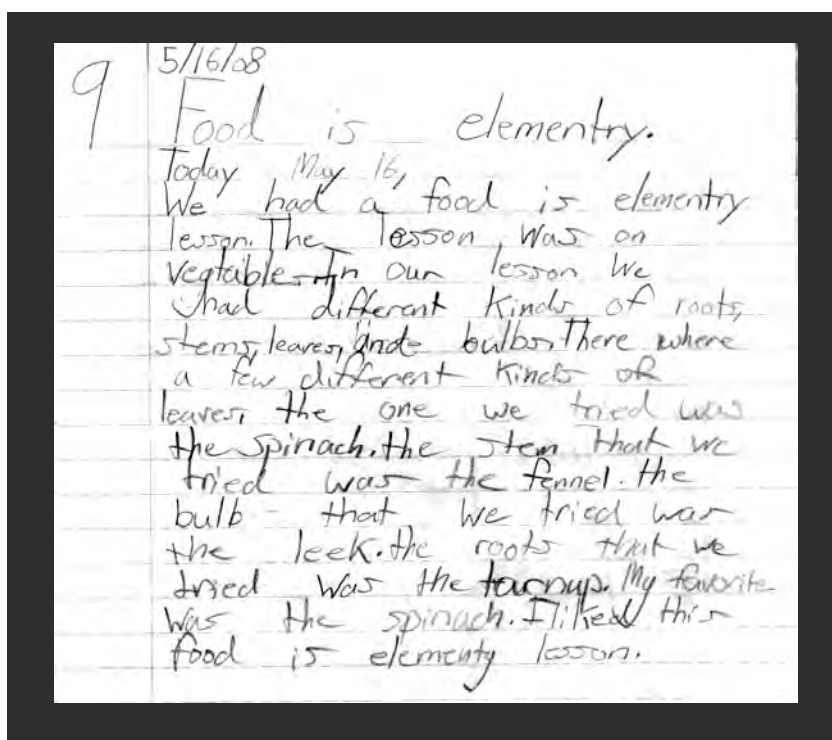 9
5/16/08
Food is elementry.
Today May 16,
We had a food is elementry
lesson. The lesson was on
vegtaible. In our lesson we
had different kinds of roots,
stems, leaves, and bulbs. There where
a few different kinds of
leaves, the one we tried was
the spinach. the stem that we
tried was the fennel. the
bulb that we tried was
the leek. the roots that we
tried was the turnup. My favorite
was the spinach. I liked this
food is elementy lesson.